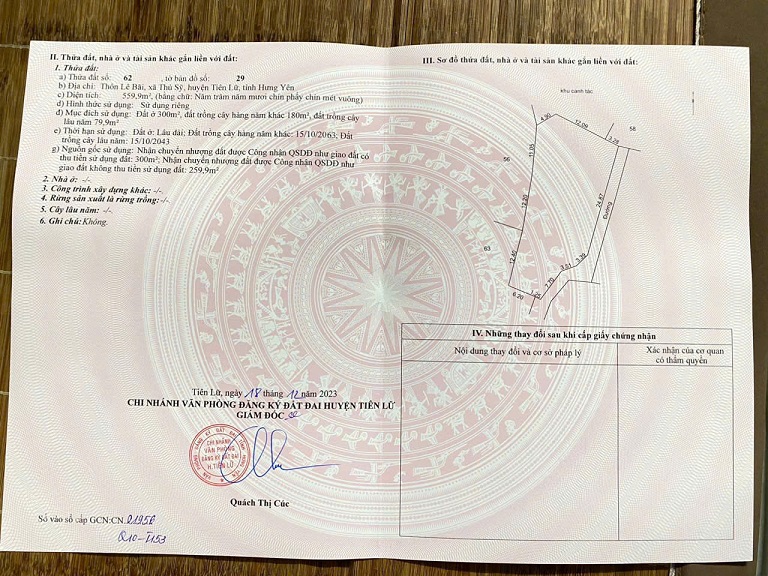 II. Thửa đất, nhà ở và tài sản khác gắn liền với đất:
1. Thửa đất:
a) Thửa đất số: 62, tờ bản đồ số: 29
b) Địa chỉ: Thôn Lê Bãi, xã Thủ Sỹ, huyện Tiên Lữ, tỉnh Hưng Yên
c) Diện tích: 559,9m², (bằng chữ: Năm trăm năm mươi chín phẩy chín mét vuông)
d) Hình thức sử dụng: Sử dụng riêng
đ) Mục đích sử dụng: Đất ở 300m², đất trồng cây hàng năm khác 180m², đất trồng cây
lâu năm 79,9m²
e) Thời hạn sử dụng: Đất ở: Lâu dài; Đất trồng cây hàng năm khác: 15/10/2063; Đất
trồng cây lâu năm: 15/10/2043
g) Nguồn gốc sử dụng: Nhận chuyển nhượng đất được Công nhận QSDĐ như giao đất có
thu tiền sử dụng đất: 300m²; Nhận chuyển nhượng đất được Công nhận QSDĐ như
giao đất không thu tiền sử dụng đất: 259,9m²
2. Nhà ở: -/-
3. Công trình xây dựng khác: -/-
4. Rừng sản xuất là rừng trồng: -/-
5. Cây lâu năm: -/-
6. Ghi chú: Không.
Tiên Lữ, ngày 18 tháng 12 năm 2023
CHI NHÁNH VĂN PHÒNG ĐĂNG KÝ ĐẤT ĐAI HUYỆN TIÊN LỮ
GIÁM ĐỐC
CHI NHÁNH
VĂN PHÒNG
ĐĂNG KÝ ĐẤT ĐAI
H.TIÊN LỮ
Quách Thị Cúc
Số vào sổ cấp GCN:CN.01956
III. Sơ đồ thửa đất, nhà ở và tài sản khác gắn liền với đất:
khu canh tác
4.90
12.09
3.28
58
56
11.05
12.20
24.67
Đường
63
12.40
3.39
3.01
7.70
6.20
IV. Những thay đổi sau khi cấp giấy chứng nhận
Nội dung thay đổi và cơ sở pháp lý
Xác nhận của cơ quan
có thẩm quyền